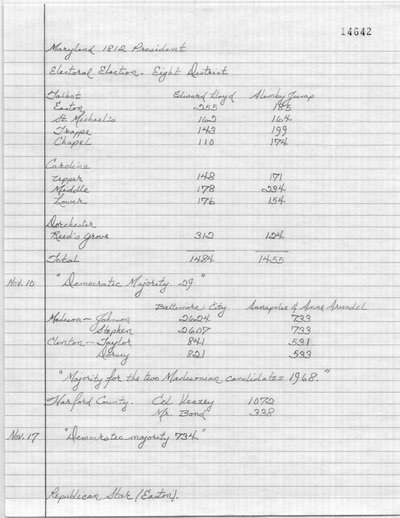 14642
Maryland 1812 President
Electoral Election. Eight District
Talbot Edward Lloyd Alemby Jump
Easton 255 185
St. Michael's 162 164
Trappe 143 199
Chapel 110 174
Caroline
Upper 148 171
Middle 178 234
Lower 176 154
Dorchester
Reed's Grove 312 124
Total 1484 1455
Nov. 10 "Democratic Majority 29"
Baltimore City Annapolis & Anne Arundel
Madison - Johnson 2624 733
Stephen 2607 733
Clinton - Taylor 841 531
Dorsey 821 533
"Majority for the two Madisonian candidates 1968."
Harford County. Col. Veazey 1072
Mr. Bond 338
Nov. 17 "Democratic majority 734"
Republican Star (Easton).